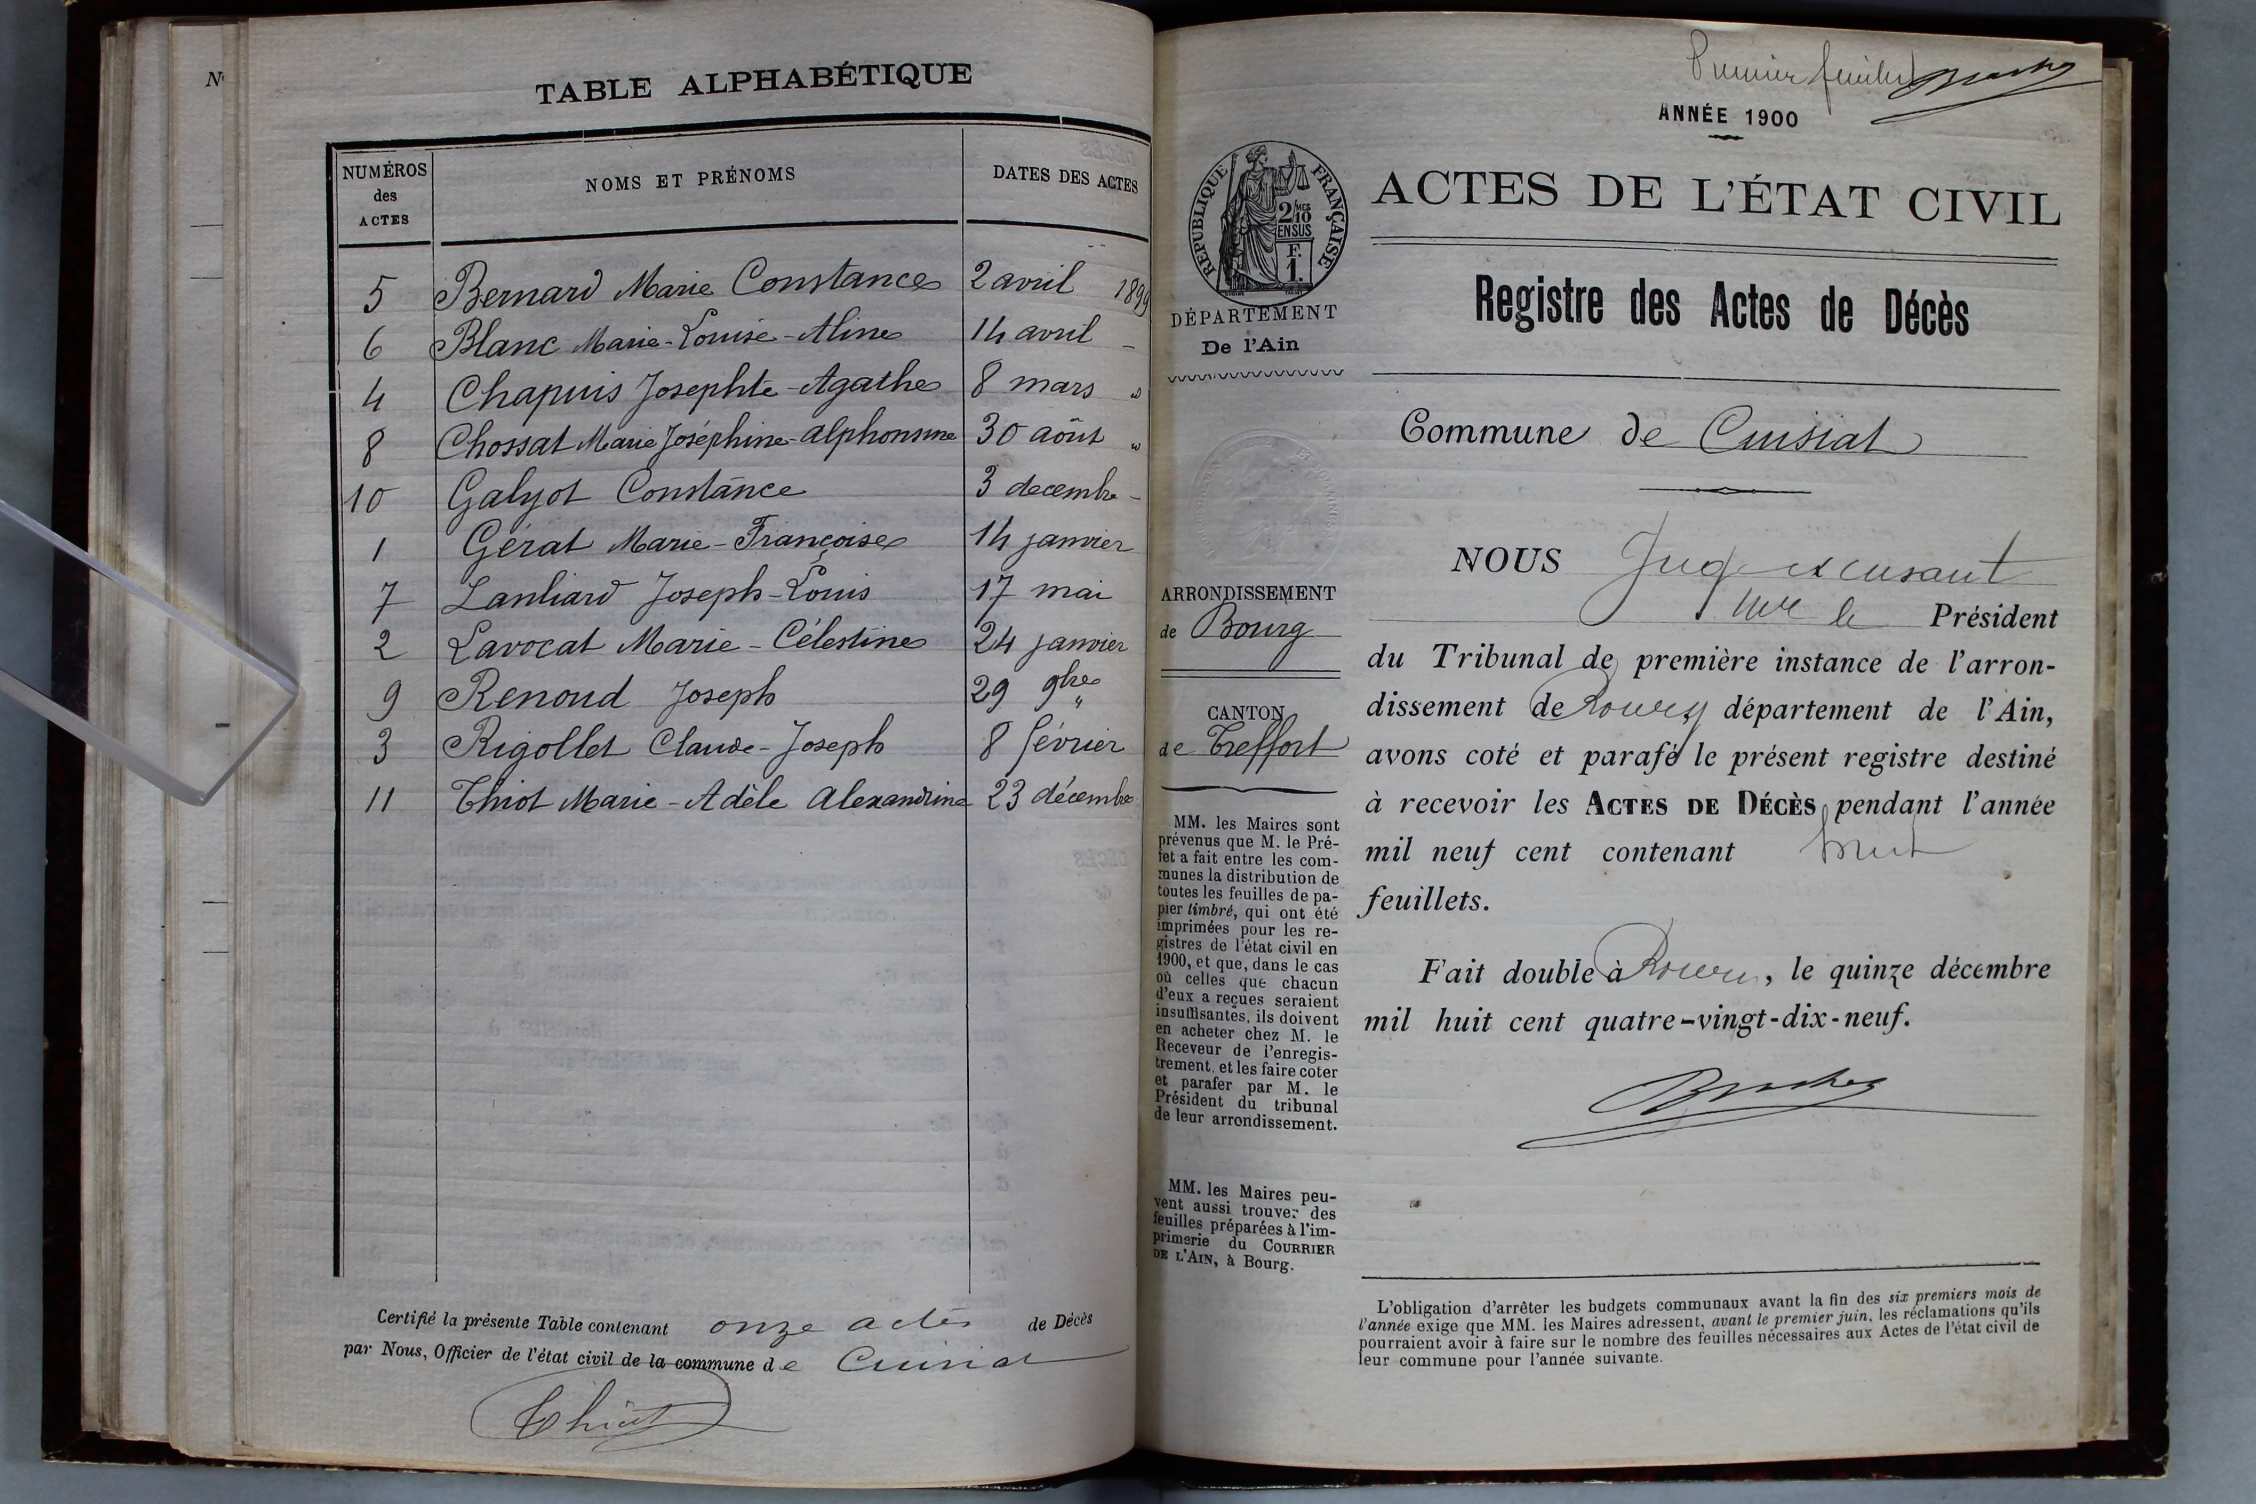 N
TABLE ALPHABÉTIQUE
NUMÉROS des ACTES
NOMS ET PRÉNOMS
DATES DES ACTES
5 Bernard Marie Constance 2 avril 1899
6 Blanc Marie-Louise-Aline 14 avril -
4 Chapuis Josephte-Agathe 8 mars "
8 Chossat Marie Joséphine-Alphonsine 30 août "
10 Galyot Constance 3 decembre -
1 Gérat Marie-Françoise 14 janvier
7 Lanliard Joseph-Louis 17 mai
2 Lavocat Marie-Célestine 24 janvier
9 Renoud Joseph 29 9bre "
3 Rigollet Claude-Joseph 8 février
11 Thiot Marie-Adèle Alexandrine 23 décembre
Certifié la présente Table contenant onze actes de Décès
par Nous, Officier de l'état civil de la commune de Cuisiat
Thiot
Premier feuillet
ANNÉE 1900
RÉPUBLIQUE FRANÇAISE
2/10 MES
EN SUS
F.
1.
DÉPARTEMENT
De l'Ain
ARRONDISSEMENT
de Bourg
CANTON
de Treffort
MM. les Maires sont
prévenus que M. le Pré-
fet a fait entre les com-
munes la distribution de
toutes les feuilles de pa-
pier timbré, qui ont été
imprimées pour les re-
gistres de l'état civil en
1900, et que, dans le cas
où celles que chacun
d'eux a reçues seraient
insuffisantes, ils doivent
en acheter chez M. le
Receveur de l'enregis-
trement, et les faire coter
et parafer par M. le
Président du tribunal
de leur arrondissement.
MM. les Maires peu-
vent aussi trouver des
feuilles préparées à l'im-
primerie du COURRIER
DE L'AIN, à Bourg.
ACTES DE L'ÉTAT CIVIL
Registre des Actes de Décès
Commune de Cuisiat
NOUS Juge
le Président
du Tribunal de première instance de l'arron-
dissement de Bourg département de l'Ain,
avons coté et parafé le présent registre destiné
à recevoir les ACTES DE DÉCÈS pendant l'année
mil neuf cent contenant huit
feuillets.
Fait double à Bourg, le quinze décembre
mil huit cent quatre-vingt-dix-neuf.
L'obligation d'arrêter les budgets communaux avant la fin des six premiers mois de
l'année exige que MM. les Maires adressent, avant le premier juin, les réclamations qu'ils
pourraient avoir à faire sur le nombre des feuilles nécessaires aux Actes de l'état civil de
leur commune pour l'année suivante.